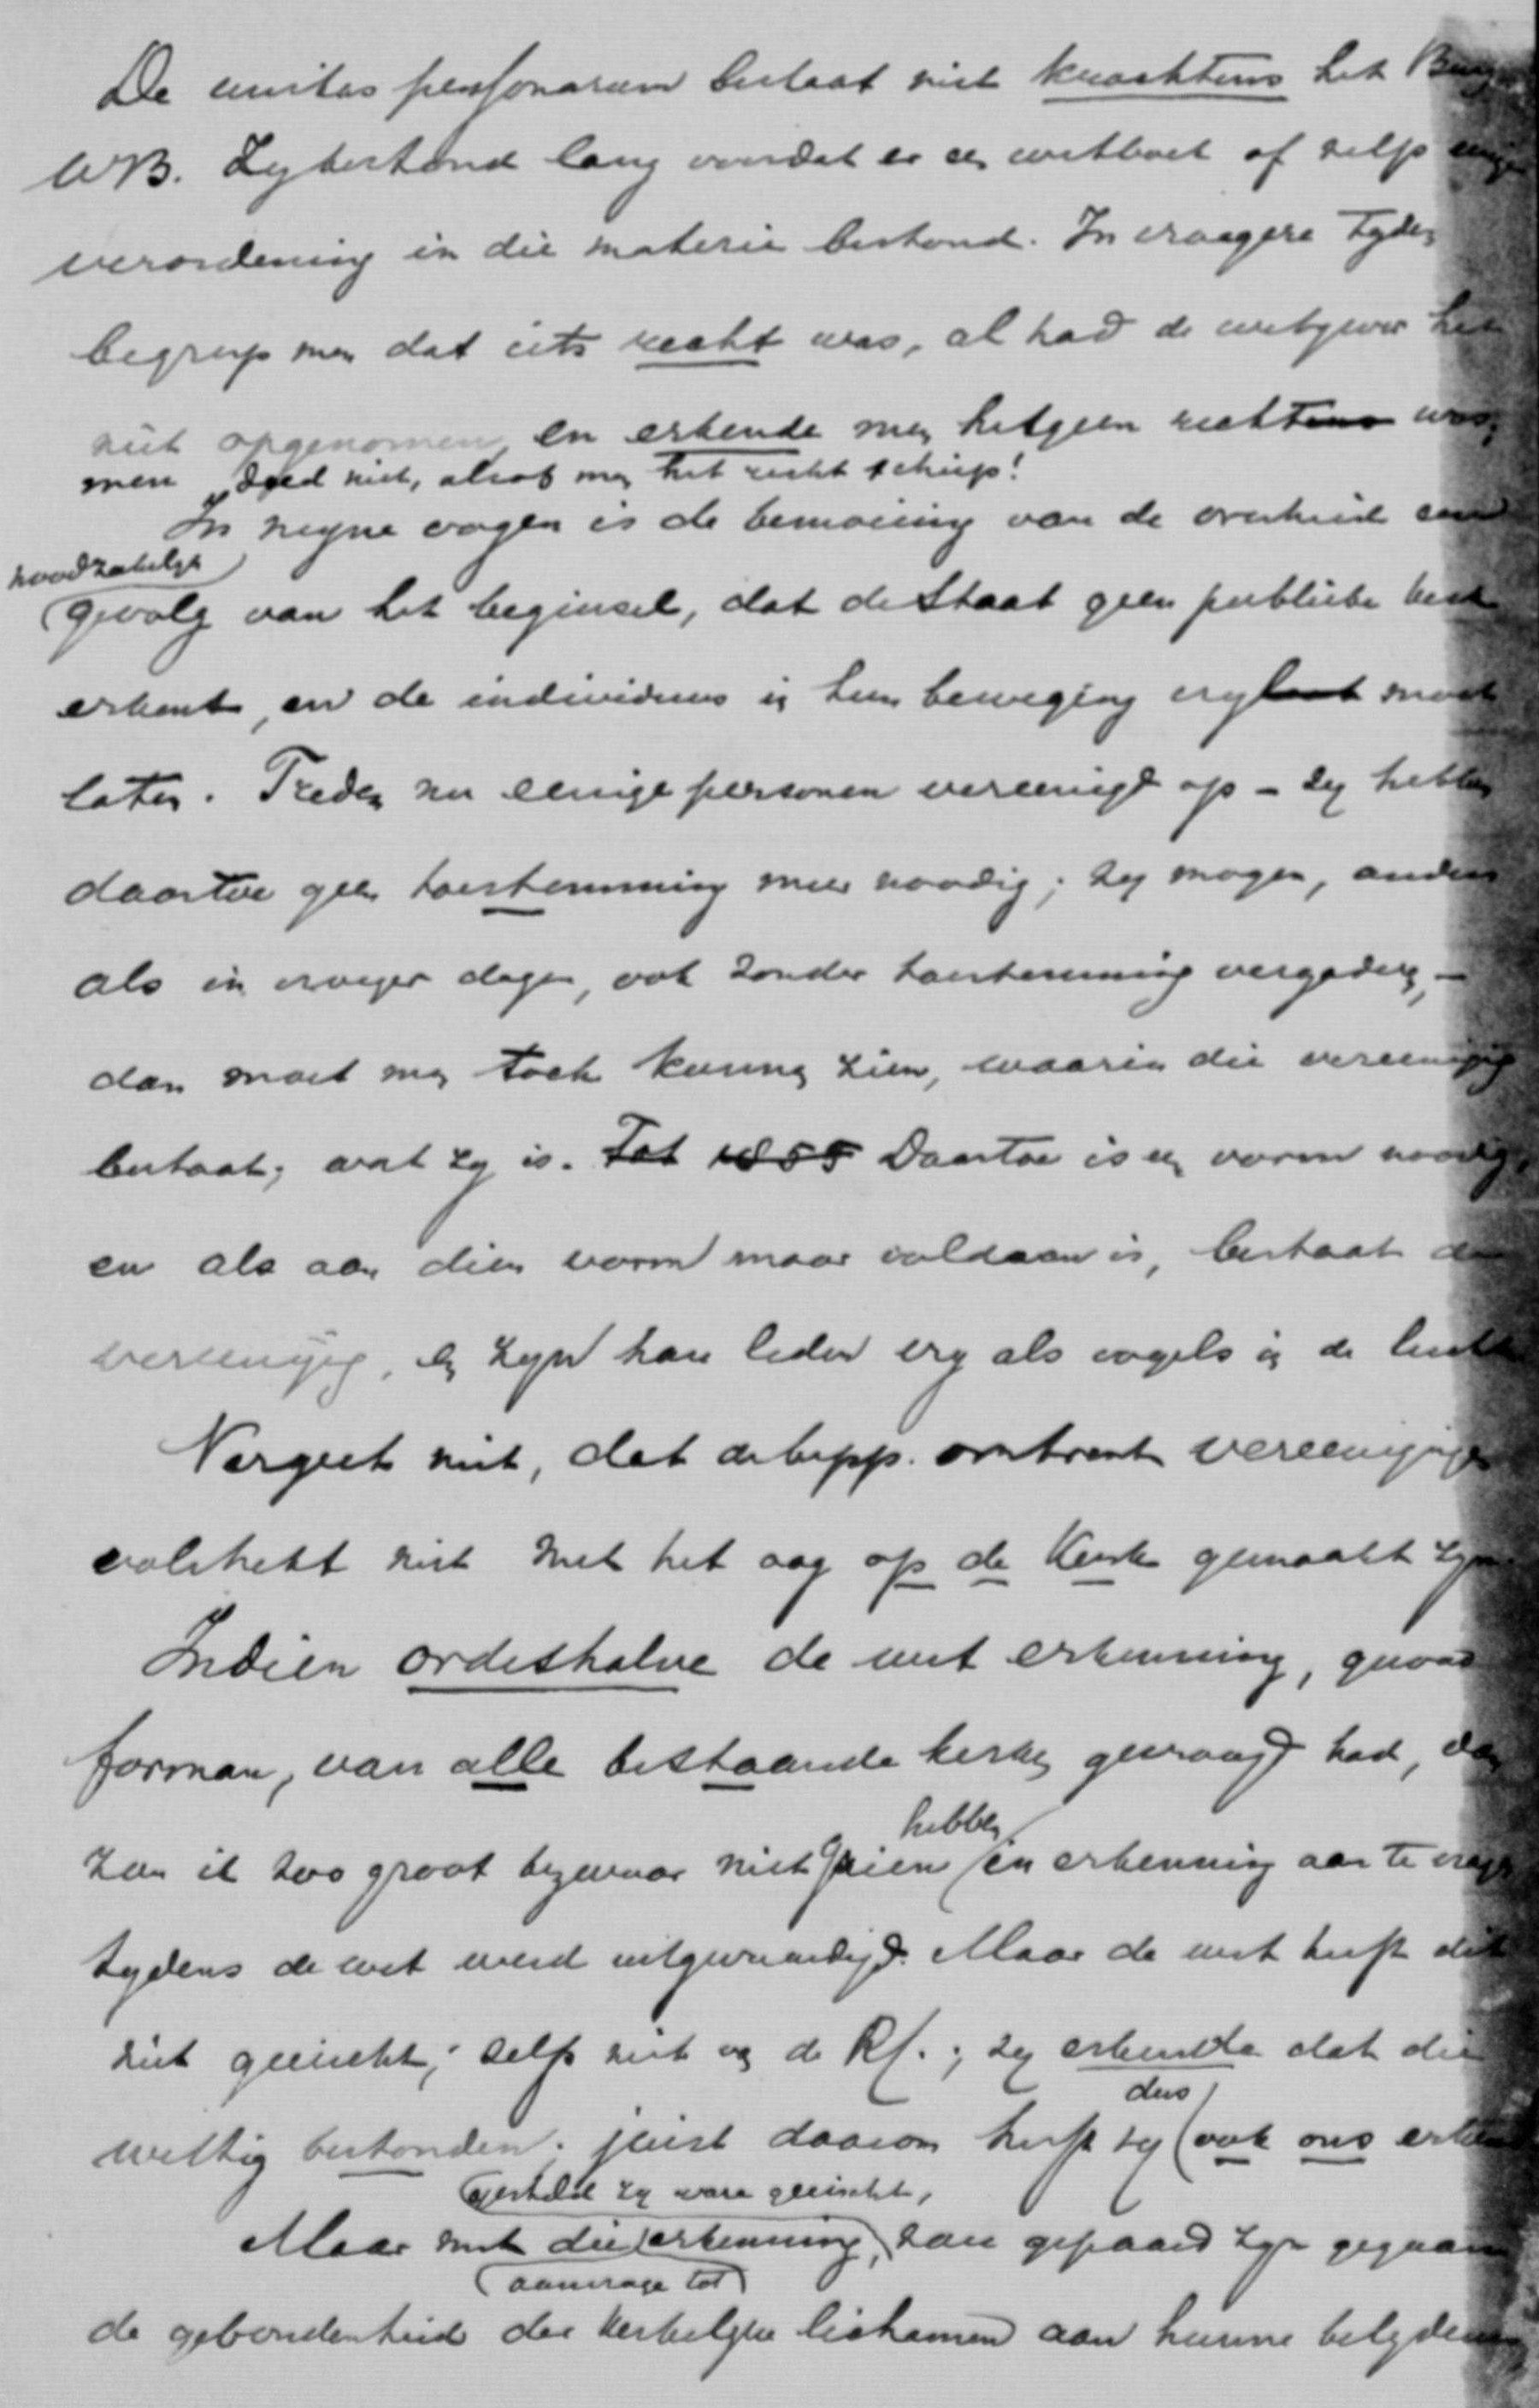 De unitas personarum bestaat niet krachtens het
WB. Zy bestond lang voordat er een wetboek of zelfs eenige
verordening in die materie bestond. In vroegere tyden
begreep men dat iets recht was, al had de wetgever het
niet opgenomen, en erkende men hetgeen rechtens was;
men deed niet, alsof men het recht schiep!
In negne vragen is de bemoeiing van de overheid een
noodzakelyk
gevolg van het beginsel, dat de Staat geen publieke kerk
erkent, en de individuus in hun beweging vry laat moet
laten. Treden nu eenige personen vereenigd op - zy hebben
daartoe geen toestemming meer noodig; zy mogen, anders
als in vroeger dagen, ook zonder toestemming vergaderen, -
dan moet men toch kunnen zien, waarin die vereeniging
bestaat; wat zy is. Tot 1855 Daartoe is een vorm noodig,
en als aan dien vorm maar voldaan is, bestaat de
vereeniging, en zyn haar leden vry als vogels in de lucht
Vergeet niet, dat de bepp. omtrent vereenigingen
volstrekt niet met het oog op de Kerk gemaakt zyn.
Indien ordeshalve de wet erkenning, quoad
formam, van alle bestaande kerken gevraagd had, dan
hebben
zou ik zoo groot bezwaar niet zien in erkenning aan te vragen
tydens de wet werd uitgevaardigd. Maar de wet heeft dit
niet geeischt; zelfs niet van de Rf.; zy erkende dat die
dus
wettig bestonden; juist daarom heeft zy ook ons erkend
gesteld zy ware geeischt,
Maar met die erkenning, zou gepaard zyn gegaan
aanvrage tot
de gebondenheid der kerkelyke lichamen aan hunne belydenis,